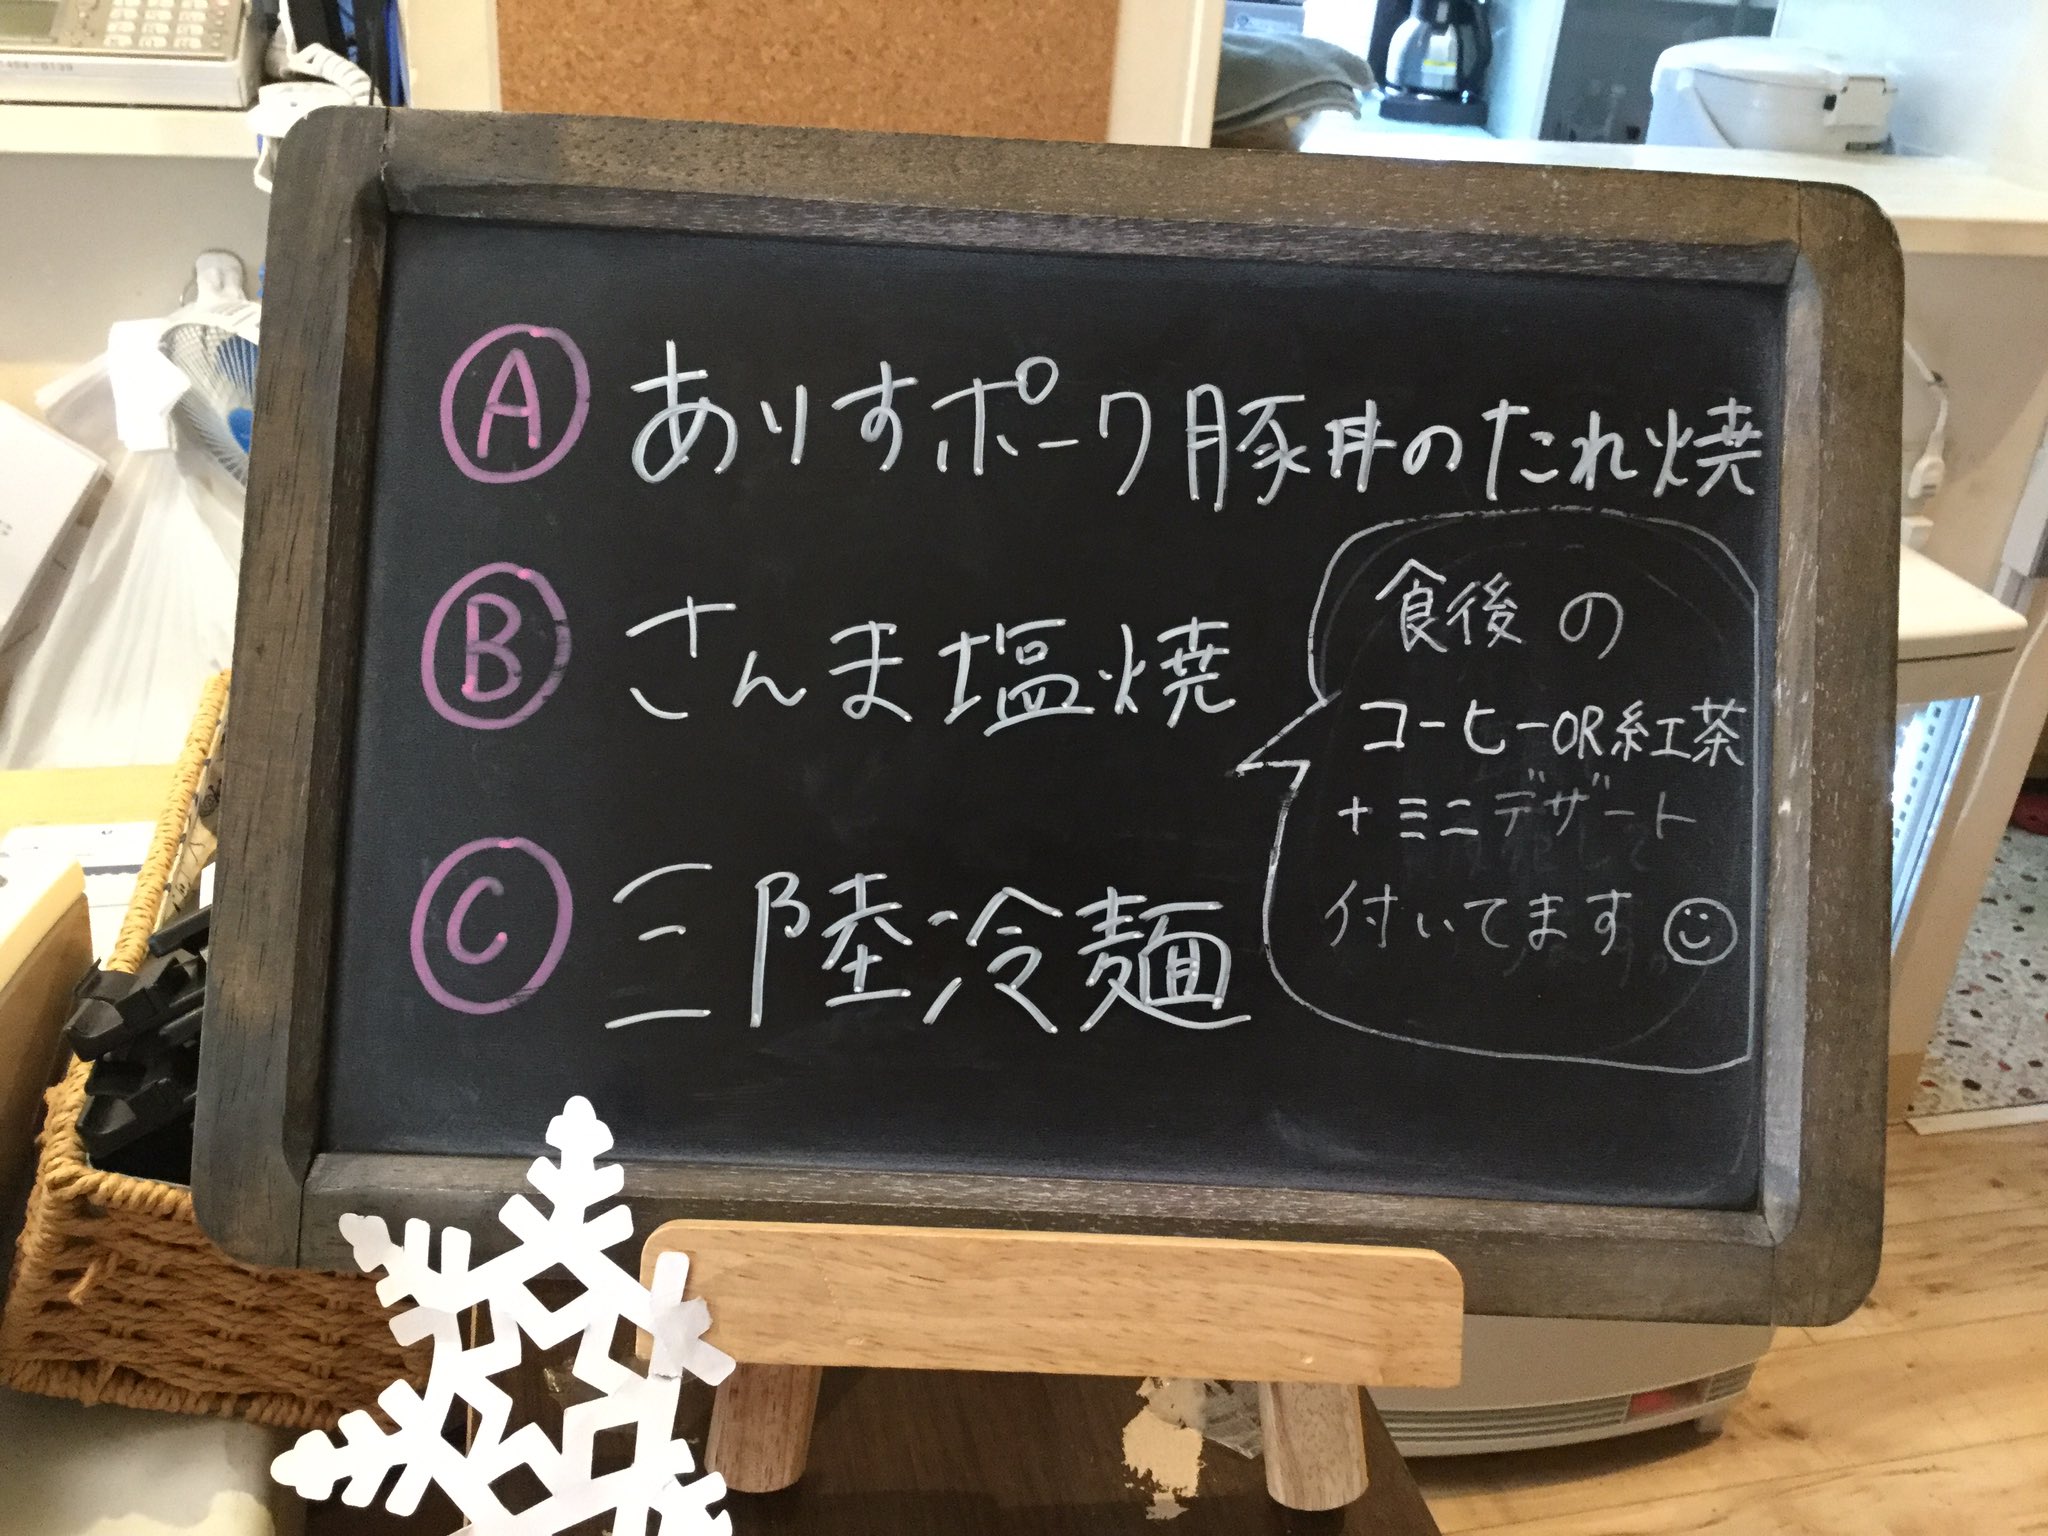 Ⓐ ありすポーク豚丼のたれ焼
Ⓑ さんま塩焼
Ⓒ 三陸冷麺
食後の
コーヒーOR紅茶
+ミニデザート
付いてます